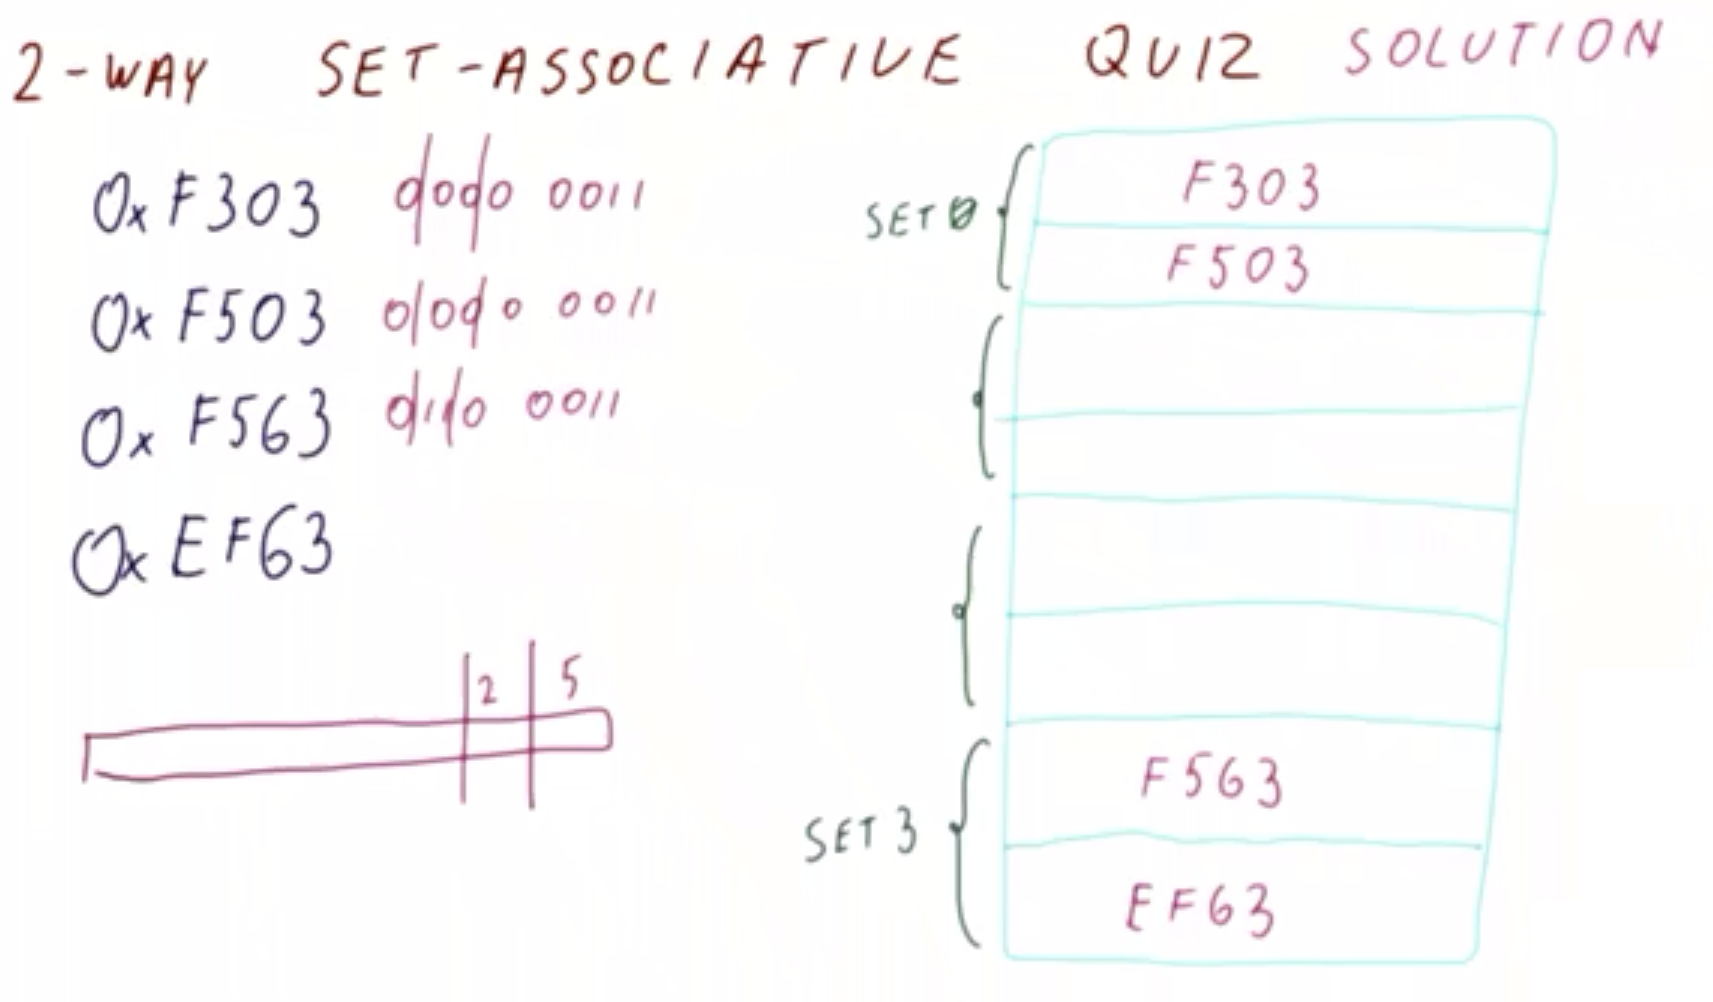 2-WAY SET-ASSOCIATIVE QUIZ SOLUTION
0xF303 0000 0011
0x F503 0000 0011
0x F563 0110 0011
0x EF63
2 5
SET 0
F303
F503
SET 3
F563
EF63